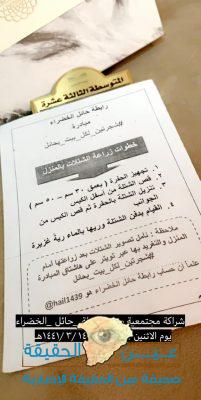 المتوسطة الثالثة عشرة
رابطة حائل الخضراء
مبادرة
#شجرتين_لكل_بيت_بحائل
خطوات زراعة الشتلات بالمنزل
١. تجهيز الحفرة ( بعمق ٣٠ سم – ٥٠ سم )
٢. قص الشتلة من أسفل الكيس
٣. تنزيل الشتلة بالحفرة ثم قص الكيس من
الجوانب
٤. القيام بدفن الشتلة وريها بالماء رية غزيرة
ملاحظة : نأمل تصوير الشتلات بعد زراعتها أمام
المنزل والتغريد بها عبر تويتر على هاشتاق المبادرة
#شجرتين_لكل_بيت_بحائل
علماً أن حساب رابطة حائل الخضراء هو @hail1439
شراكة مجتمعية حائل_الخضراء
يوم الاثنين ١٤٤١/٣/١٤هـ
عين الحقيقة
صحيفة عين الحقيقة الإخبارية